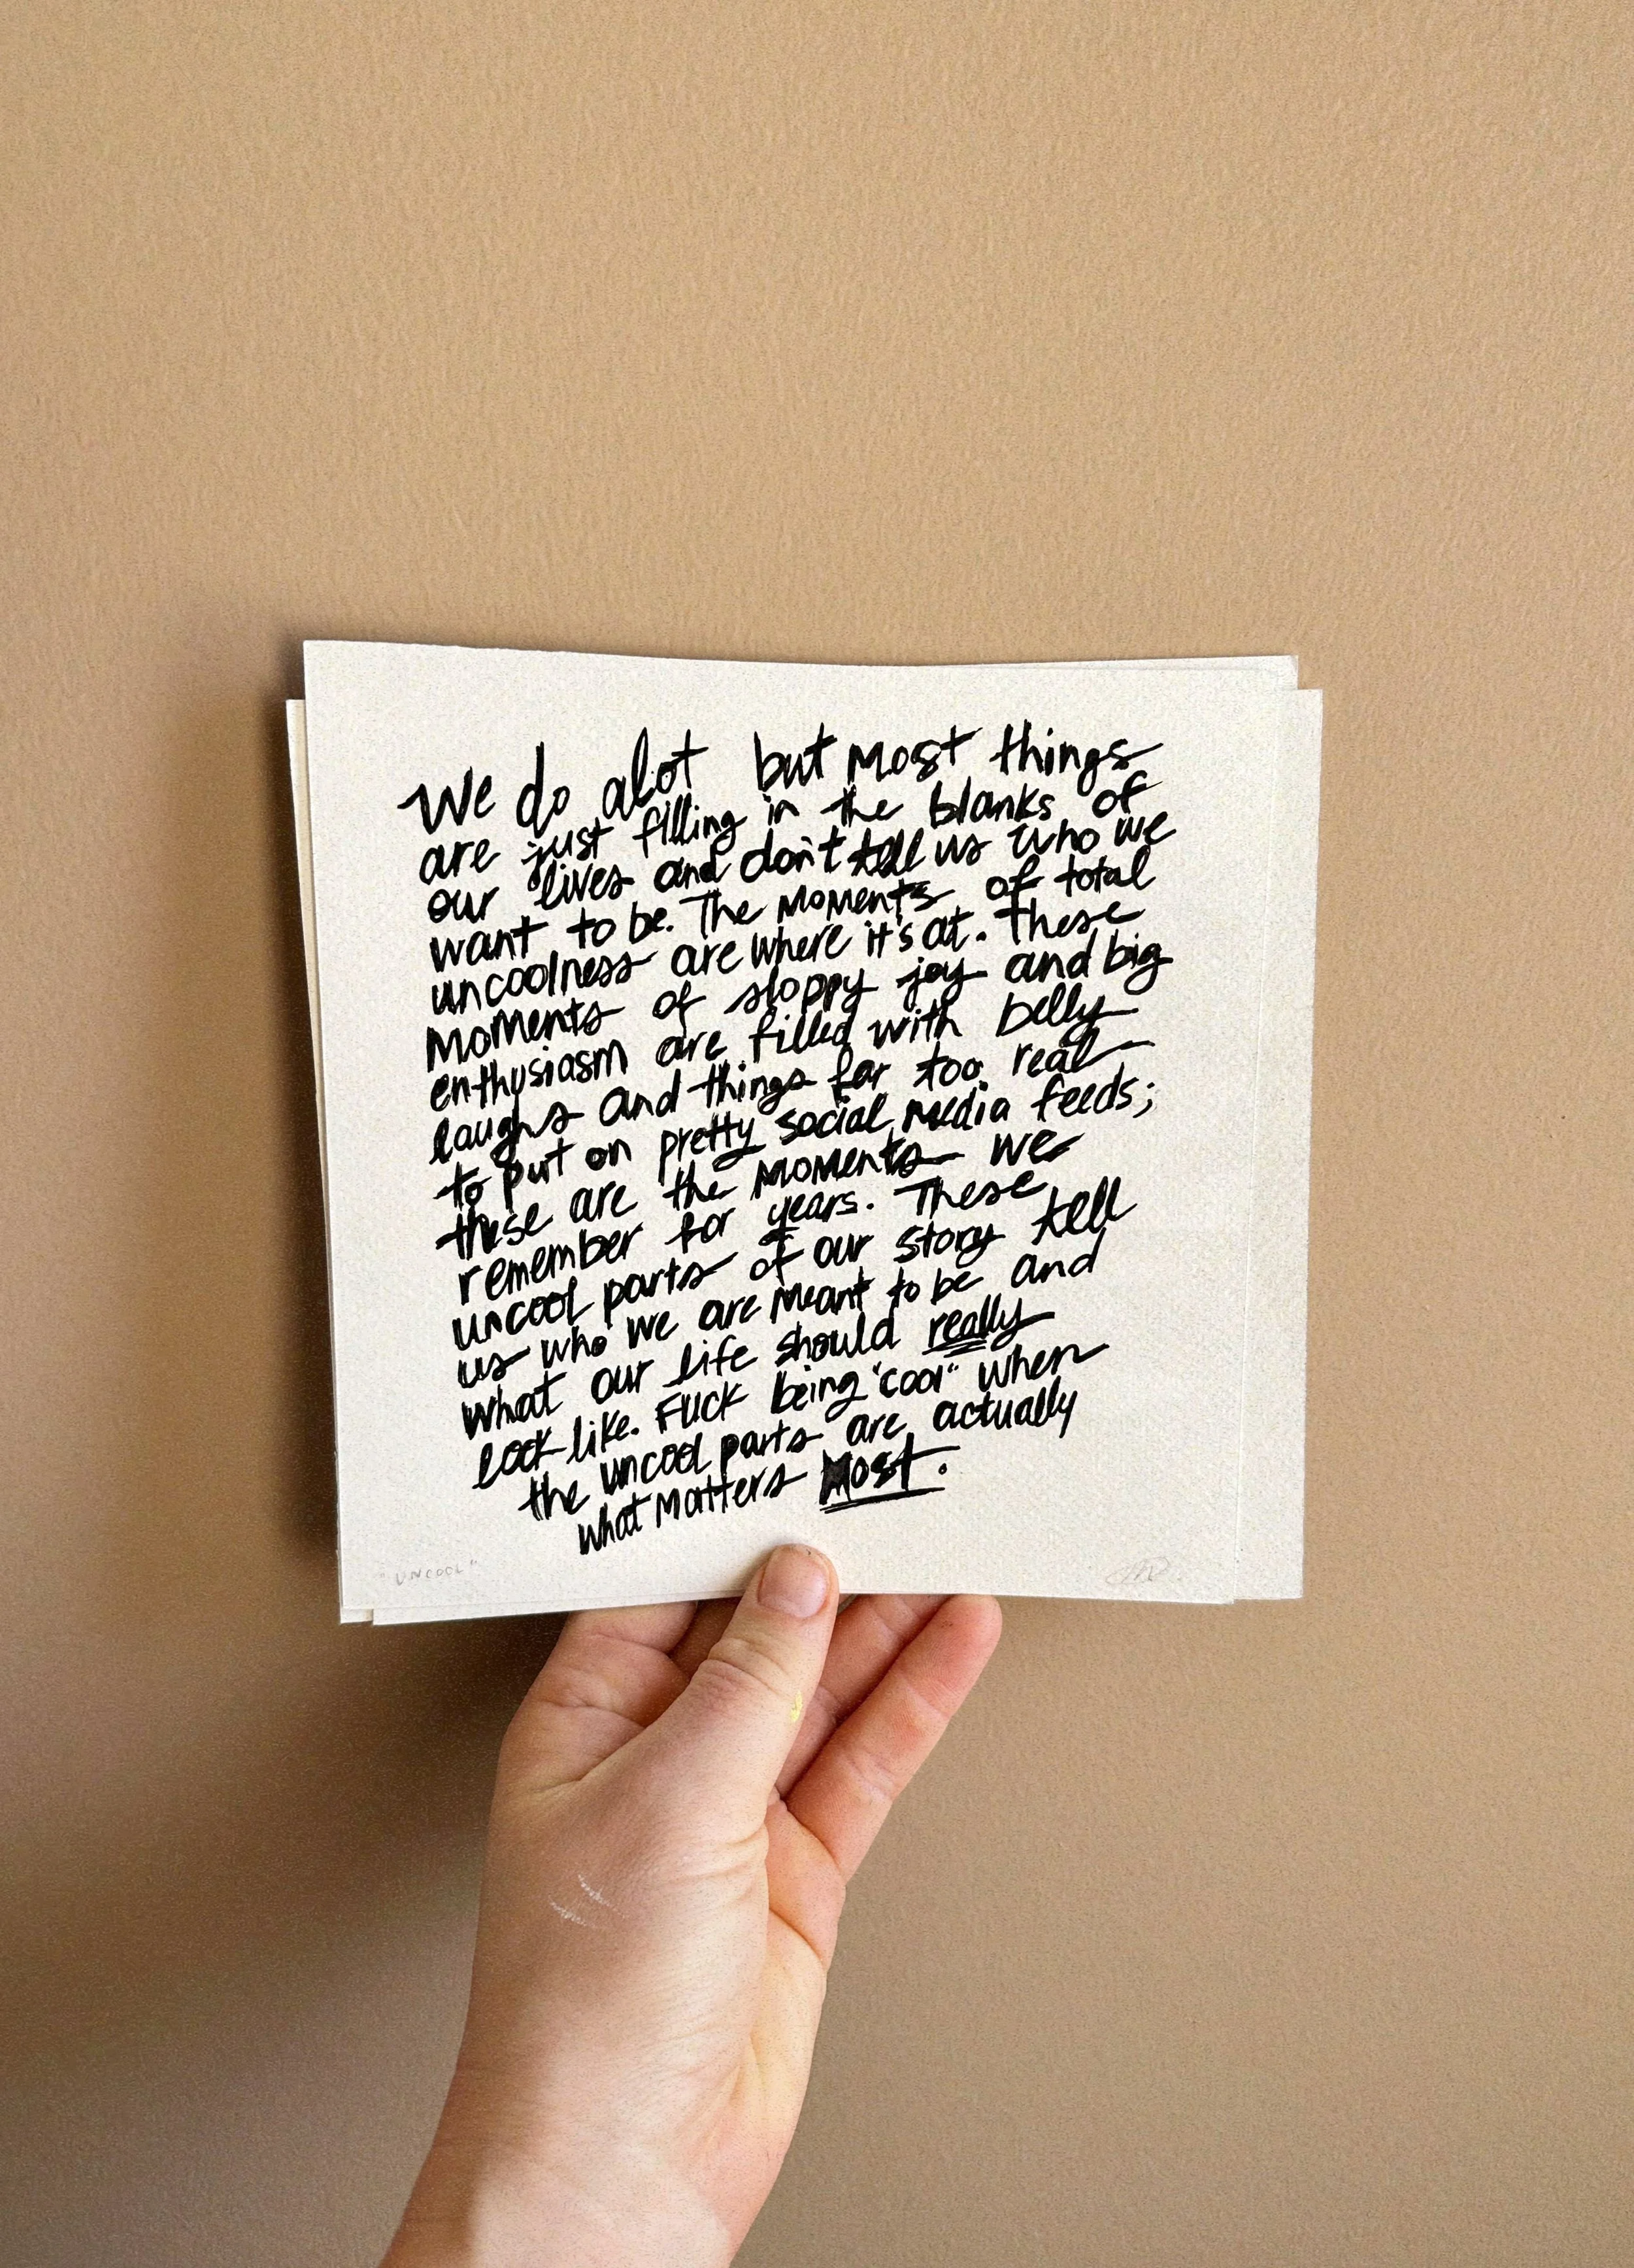 We do alot but most things
are just filling in the blanks of
our lives and don't tell us who we
want to be. The moments of total
uncoolness are where it's at. These
moments of sloppy joy and big
enthusiasm are filled with belly
laughs and things far too real
to put on pretty social media feeds;
these are the moments we
remember for years. These
uncool parts of our story tell
us who we are meant to be and
what our life should really
look like. Fuck being "cool" when
the uncool parts are actually
what matters most.
"UNCOOL"